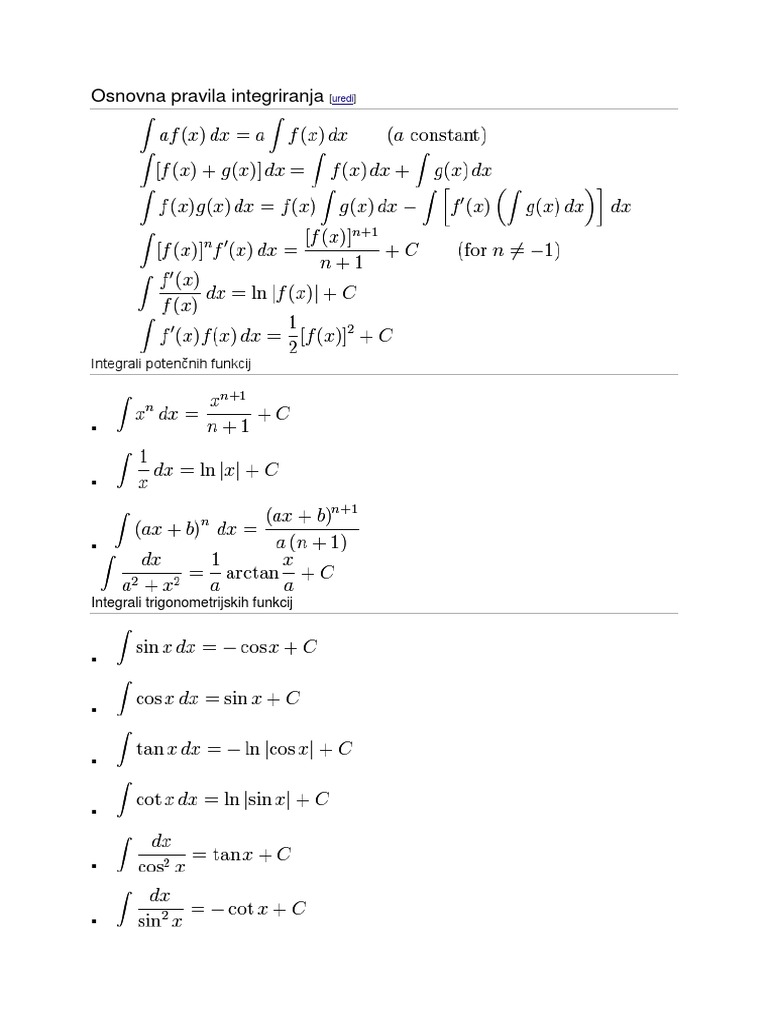 Osnovna pravila integriranja [uredi]
∫ af(x) dx = a ∫ f(x) dx (a constant)
∫ [f(x) + g(x)] dx = ∫ f(x) dx + ∫ g(x) dx
∫ f(x)g(x) dx = f(x) ∫ g(x) dx − ∫ [f′(x) (∫ g(x) dx)] dx
∫ [f(x)]ⁿ f′(x) dx = [f(x)]ⁿ⁺¹ / (n + 1) + C (for n ≠ −1)
∫ f′(x) / f(x) dx = ln |f(x)| + C
∫ f′(x)f(x) dx = 1/2 [f(x)]² + C
Integrali potenčnih funkcij
▪ ∫ xⁿ dx = xⁿ⁺¹ / (n + 1) + C
▪ ∫ 1/x dx = ln |x| + C
▪ ∫ (ax + b)ⁿ dx = (ax + b)ⁿ⁺¹ / a (n + 1)
∫ dx / (a² + x²) = 1/a arctan x/a + C
Integrali trigonometrijskih funkcij
▪ ∫ sin x dx = − cos x + C
▪ ∫ cos x dx = sin x + C
▪ ∫ tan x dx = − ln |cos x| + C
▪ ∫ cot x dx = ln |sin x| + C
▪ ∫ dx / cos² x = tan x + C
▪ ∫ dx / sin² x = − cot x + C